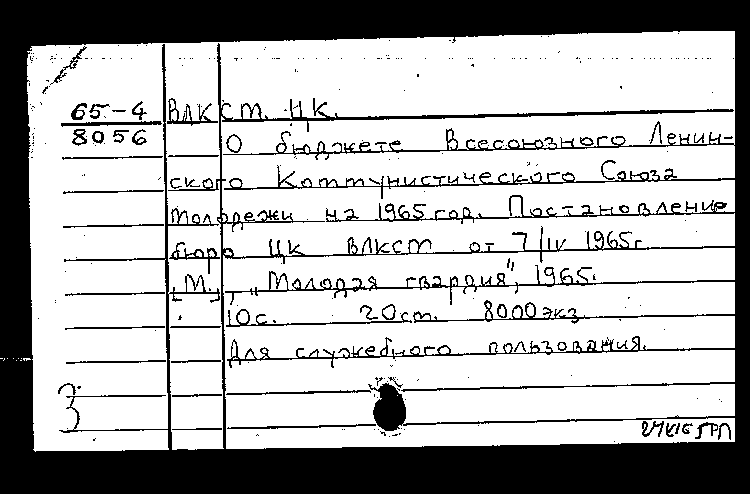 65-4 ВЛКСМ. ЦК.
8056 О бюджете Всесоюзного Ленин-
ского Коммунистического Союза
молодежи на 1965 год. Постановление
бюро ЦК ВЛКСМ от 7/IV 1965г
[М.], „Молодая гвардия", 1965.
10с. 20см. 8000 экз
Для служебного пользования.
З